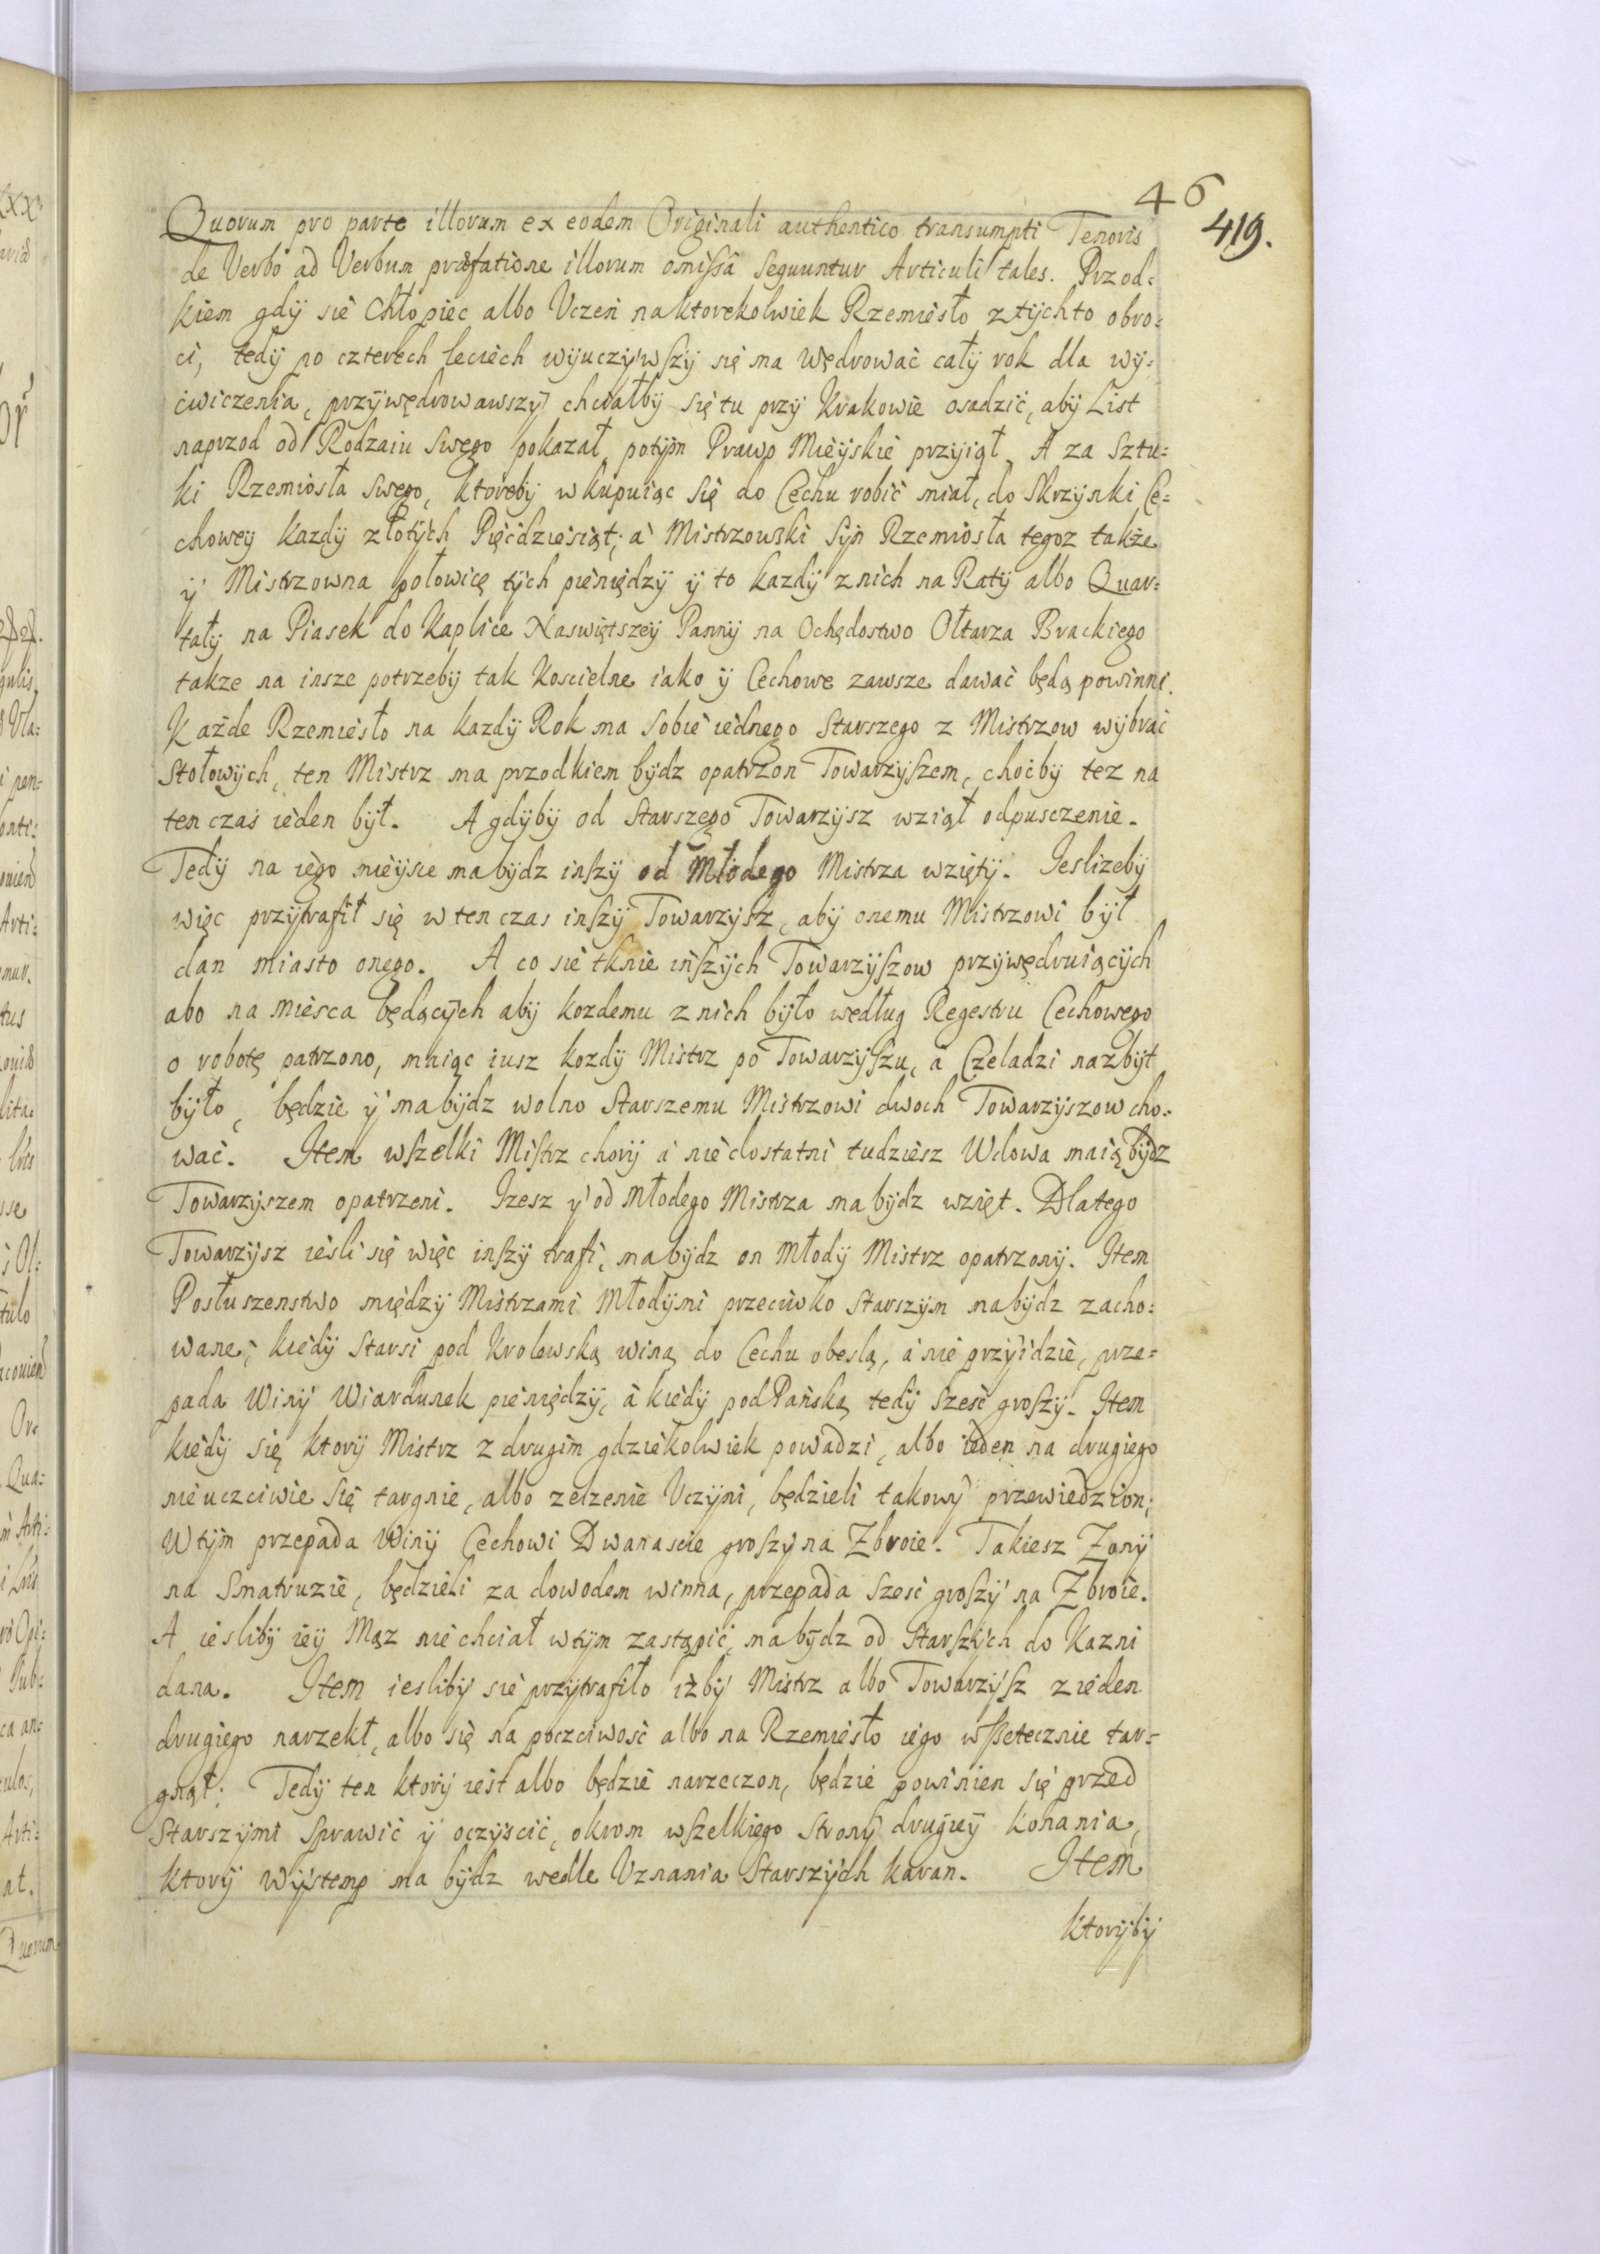 46
419.
Quorum pro parte illorum ex eodem Originali authentico transumpti Tenoris
de Verbo ad Verbum præfatione illorum omissâ sequuntur Articuli tales. Przod=
kiem gdÿ się Chłopiec albo Uczeń na ktorekolwiek Rzemiesło z tÿch to obro=
ci, tedÿ po czterech leciech wÿuczÿwszÿ się ma Wędrować całÿ rok dla wÿ=
ćwiczenia, przÿwędrowawszÿ chciałbÿ się tu przÿ Krakowie osadzić, abÿ List
naprzod od Rodzaiu swego pokazał, potÿm Prawo Mieÿskie przÿiął. A za Sztu=
ki Rzemiosła swego, ktorebÿ wkupuiąc się do Cechu robić miał, do Skrzÿnki Ce=
chowey Kazdÿ złotÿch Pięćdziesiąt; a Mistrzowski Sÿn Rzemiosła tegoz także
ÿ Mistrzowna połowicę tÿch pieniędzÿ ÿ to kazdÿ z nich na Ratÿ albo Quar=
tałÿ na Piasek do Kaplice Naswiętszeÿ Pannÿ na Ochędostwo Ołtarza Brackiego
takze na insze potrzebÿ tak Koscielne iako ÿ Cechowe zawsze dawać będą powinni.
Każde Rzemiesło na kazdÿ Rok ma sobie iednego Starszego z Mistrzow wÿbrać
Stołowÿch, ten Mistrz ma przodkiem bÿdz opatrzon Towarzÿszem, choćbÿ tez na
ten czas ieden bÿł. A gdÿbÿ od Starszego Towarzÿsz wziął odpusczenie.
Tedÿ na iego mieÿsce ma bÿdz inszÿ od Młodego Mistrza wziętÿ. Jeslizebÿ
więc przÿtrafił się w ten czas inszÿ Towarzÿsz, abÿ onemu Mistrzowi bÿł
dan miasto onego. A co się tknie inszÿch Towarzÿszow przÿwędruiącÿch
abo na miesca będącÿch abÿ kozdemu z nich bÿło według Regestru Cechowego
o robotę patrzono, maiąc iusz kozdÿ Mistrz po Towarzÿszu, a Czeladzi nazbÿt
bÿło, będzie ÿ ma bÿdz wolno Starszemu Mistrzowi dwoch Towarzÿszow cho=
wać. Item wszelki Mistrz chorÿ a niedostatni tudziesz Wdowa maią bÿdz
Towarzÿszem opatrzeni. Izesz ÿ od Młodego Mistrza ma bÿdz wzięt. Dlatego
Towarzÿsz iesli się więc inszÿ trafi, ma bÿdz on Młodÿ Mistrz opatrzonÿ. Item
Posłuszenstwo międzÿ Mistrzami Młodÿmi przeciwko Starszÿm ma bÿdz zacho=
wane; kiedÿ Starsi pod Krolewską winą do Cechu obeslą, a nie przÿidzie, prze=
pada Winÿ Wiardunek pieniędzÿ, a kiedÿ pod Pańską tedÿ szesć groszÿ. Item
kiedÿ się ktorÿ Mistrz z drugim gdziekolwiek powadzi, albo ieden na drugiego
nieuczciwie się targnie, albo zelzenie Uczÿni, będzieli takowÿ przewiedzion;
W tÿm przepada Winÿ Cechowi Dwanascie groszÿ na Zbroie. Takiesz Zonÿ
na Smatruzie, będzieli za dowodem winna, przepada szesć groszÿ na Zbroie.
A iesliby ieÿ Mąz nie chciał w tÿm zastąpić, ma bÿdz od Starszÿch do Kazni
dana. Item iesliby się przÿtrafiło iżbÿ Mistrz albo Towarzÿsz z ieden
drugiego narzekł, albo się na poczciwość albo na Rzemiesło iego wszetecznie tar=
gnął: Tedÿ ten ktorÿ iest albo będzie narzeczon, będzie powinien się przed
Starszÿmi sprawić ÿ oczÿscić, okrom wszelkiego stronÿ drugieÿ konania,
ktorÿ Wÿstemp ma bÿdz wedle Uznania Starszÿch karan. Item
ktorÿbÿ